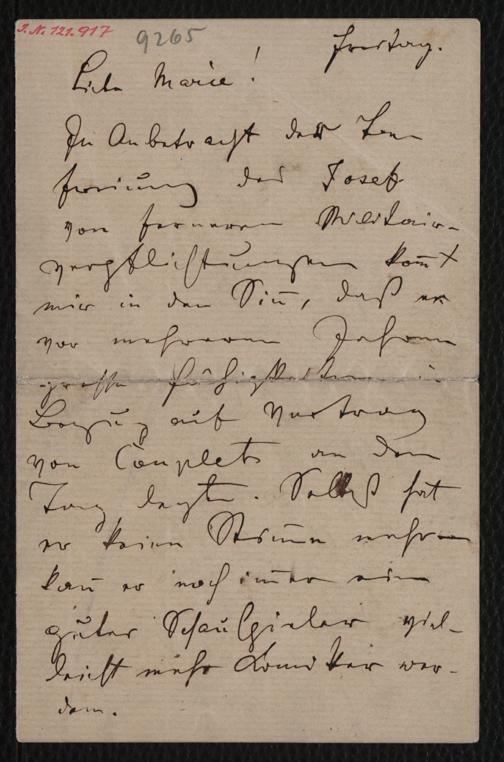 J. N. 121.917
9265
Freitag.
Liebe Marie!
In Anbetracht der Be-
freiung des Josef
von ferneren Militair-
verpflichtungen kom̄t
mir in den Sin̄, daß er
vor mehreren Jahren
große Fähigkeiten in
Bezug auf Vortrag
von Couplets an den
Tag legte. Selbst hat
er keine Stim̄e mehr
kan̄ er noch im̄er ein
guter Schauspieler viel-
leicht mehr Komiker wer-
den.